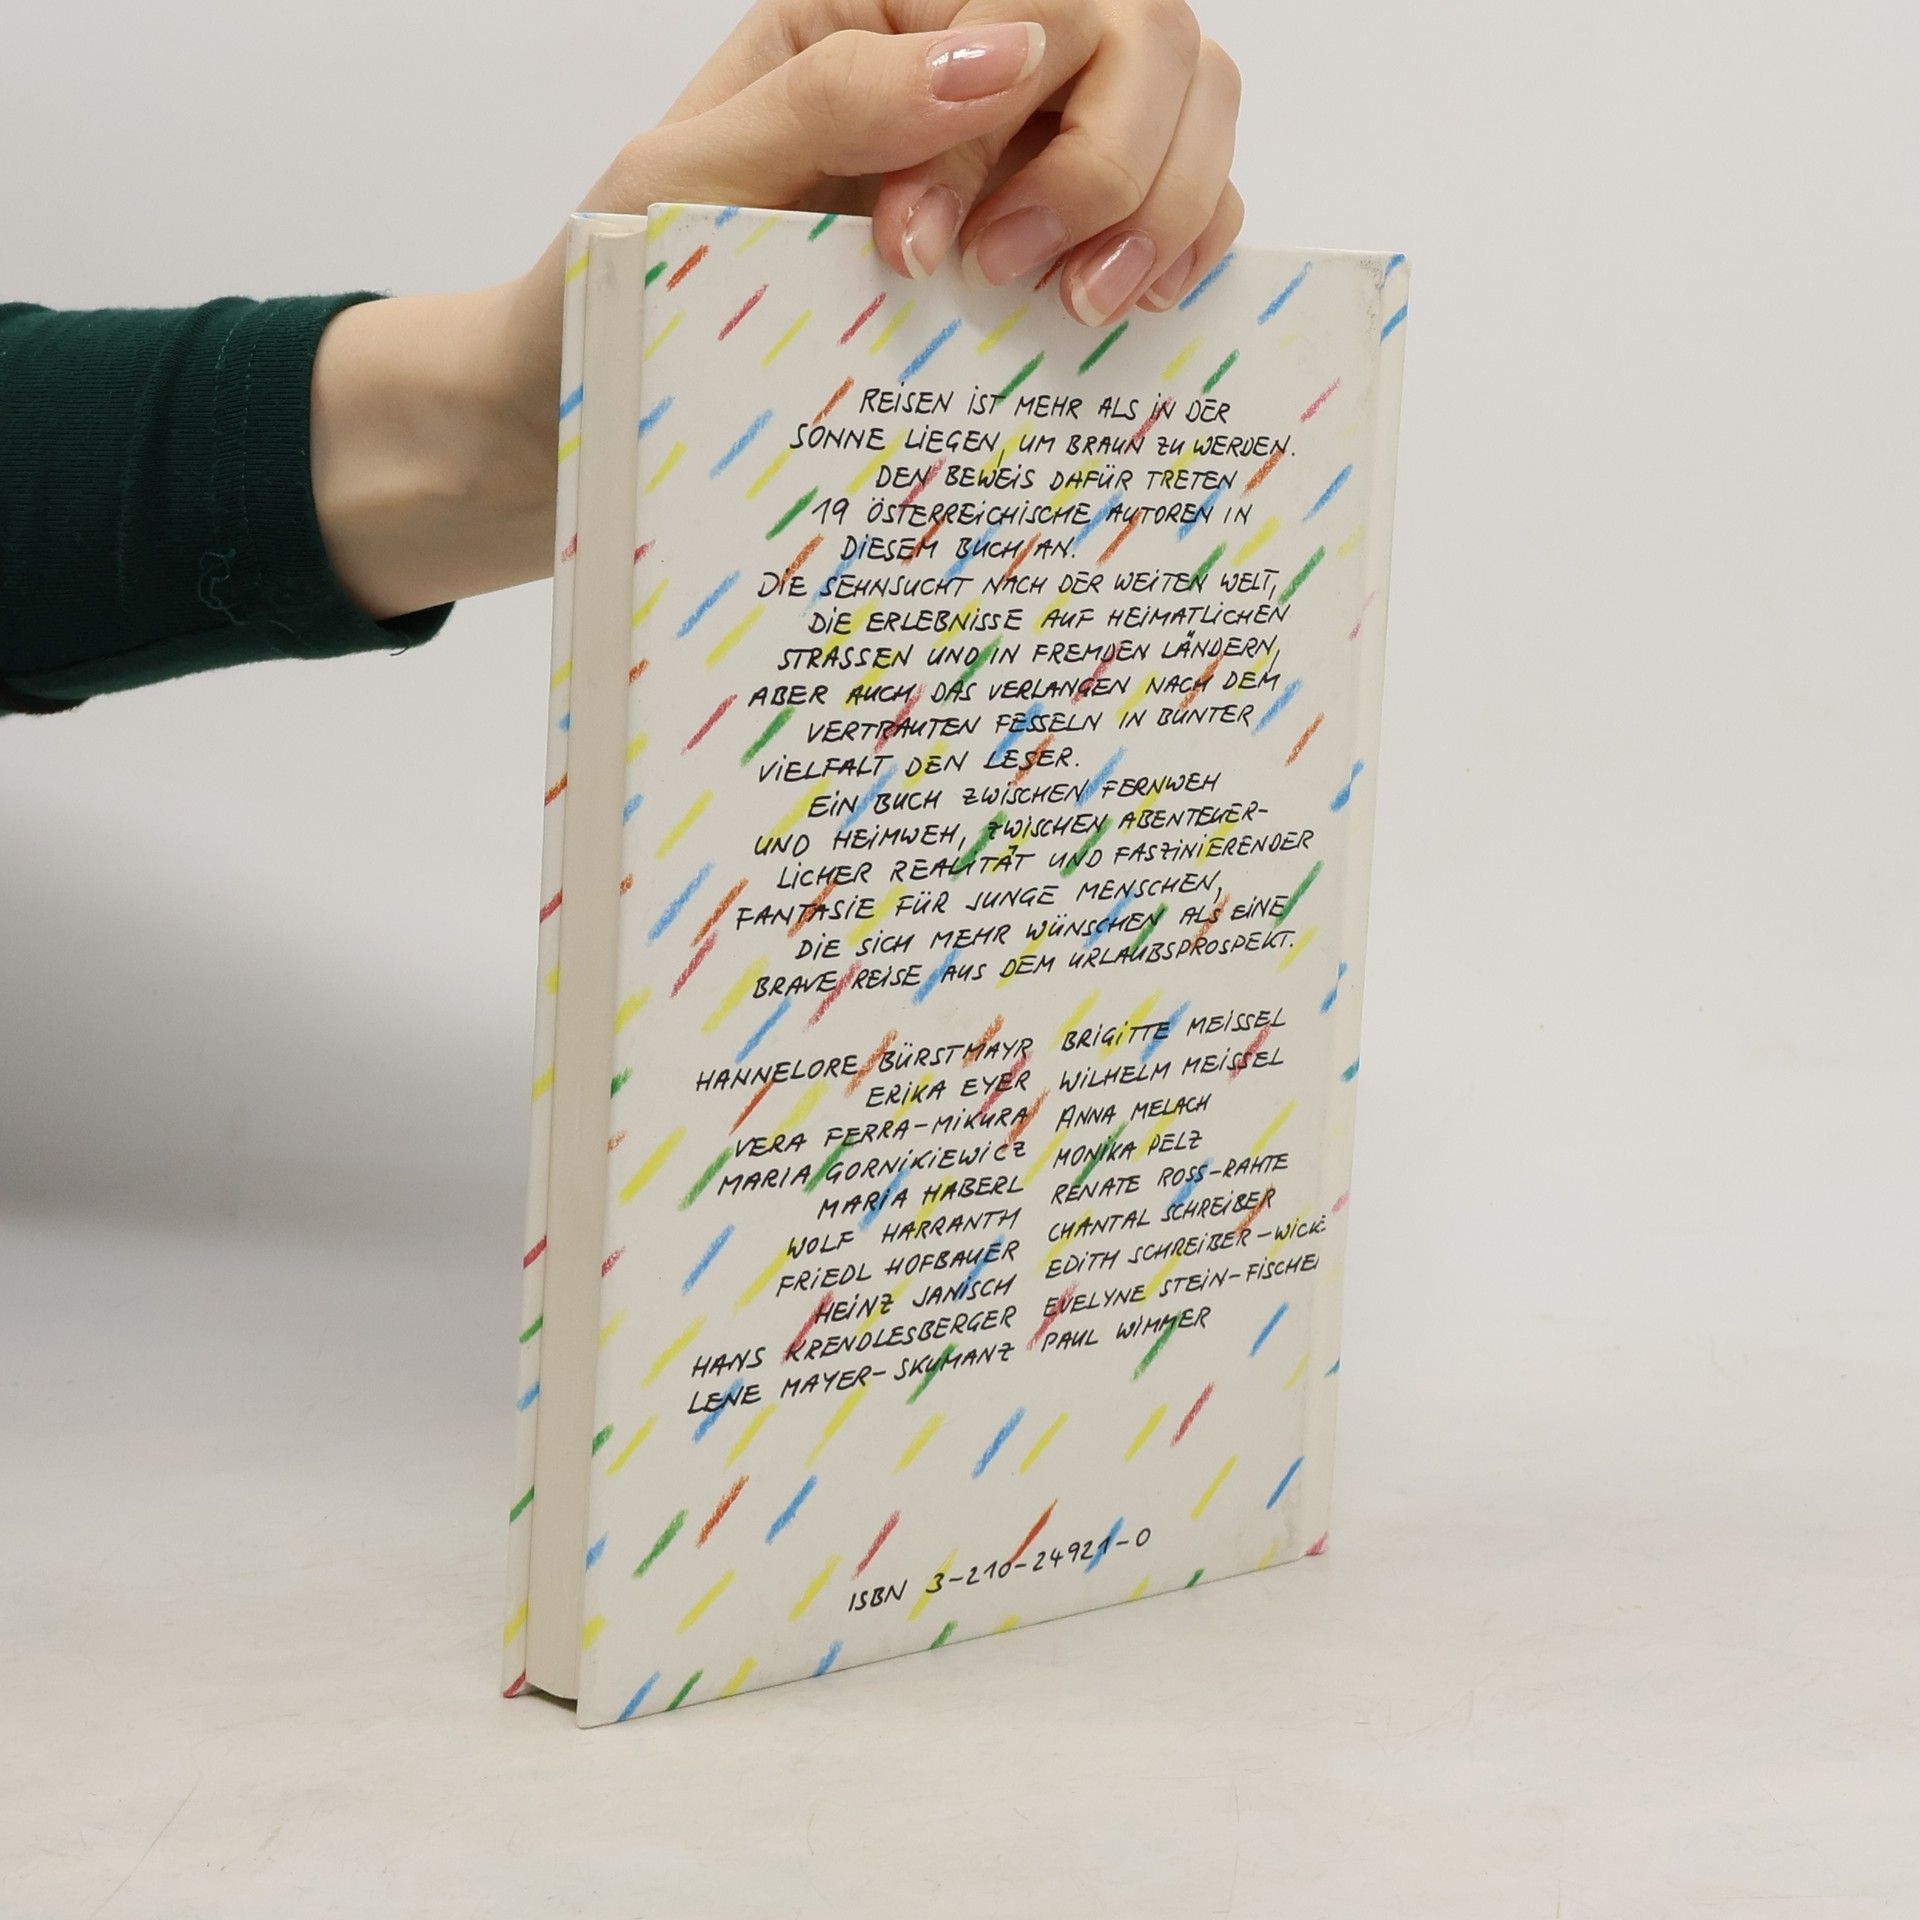 REISEN IST MEHR ALS IN DER
SONNE LIEGEN, UM BRAUN ZU WERDEN.
DEN BEWEIS DAFÜR TRETEN
19 ÖSTERREICHISCHE AUTOREN IN
DIESEM BUCH AN.
DIE SEHNSUCHT NACH DER WEITEN WELT,
DIE ERLEBNISSE AUF HEIMATLICHEN
STRASSEN UND IN FREMDEN LÄNDERN,
ABER AUCH DAS VERLANGEN NACH DEM
VERTRAUTEN FESSELN IN BUNTER
VIELFALT DEN LESER.
EIN BUCH ZWISCHEN FERNWEH
UND HEIMWEH, ZWISCHEN ABENTEUER-
LICHER REALITÄT UND FASZINIERENDER
FANTASIE FÜR JUNGE MENSCHEN,
DIE SICH MEHR WÜNSCHEN ALS EINE
BRAVE REISE AUS DEM URLAUBSPROSPEKT.
HANNELORE BÜRSTMAYR
ERIKA EYER
VERA FERRA-MIKURA
MARIA GORNIKIEWICZ
MARIA HABERL
WOLF HARRANTH
FRIEDL HOFBAUER
HEINZ JANISCH
HANS KRENDLESBERGER
LENE MAYER-SKUMANZ
BRIGITTE MEISSEL
WILHELM MEISSEL
ANNA MELACH
MONIKA PELZ
RENATE ROSS-RAHTE
CHANTAL SCHREIBER
EDITH SCHREIBER-WICKE
EVELYNE STEIN-FISCHER
PAUL WIMMER
ISBN 3-210-24921-0